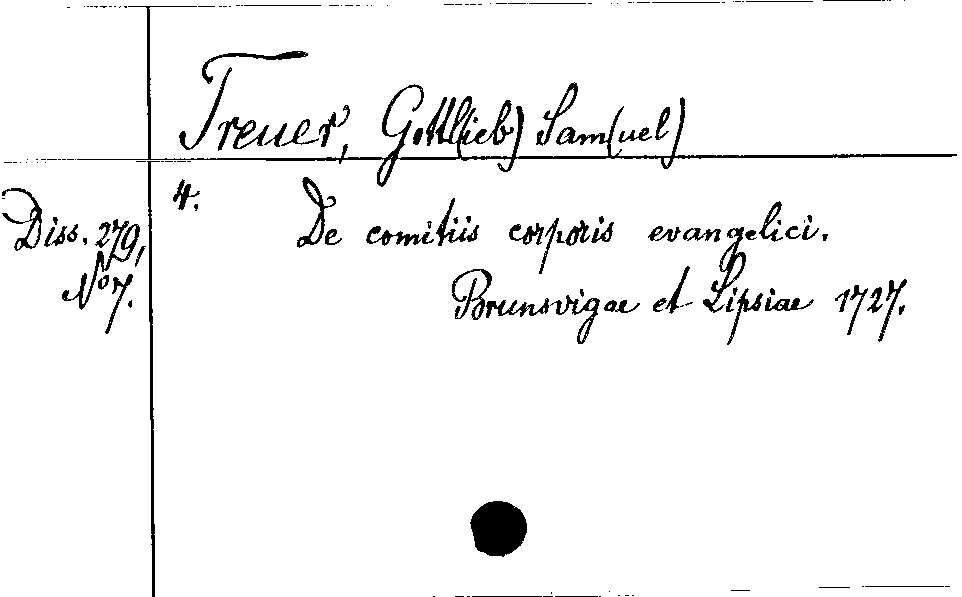 Treuer, Gottl(ieb) Sam(uel)
4.
Diss. 279,
No 7.
De comitiis corporis evangelici.
Brunsvigae et Lipsiae 1727.